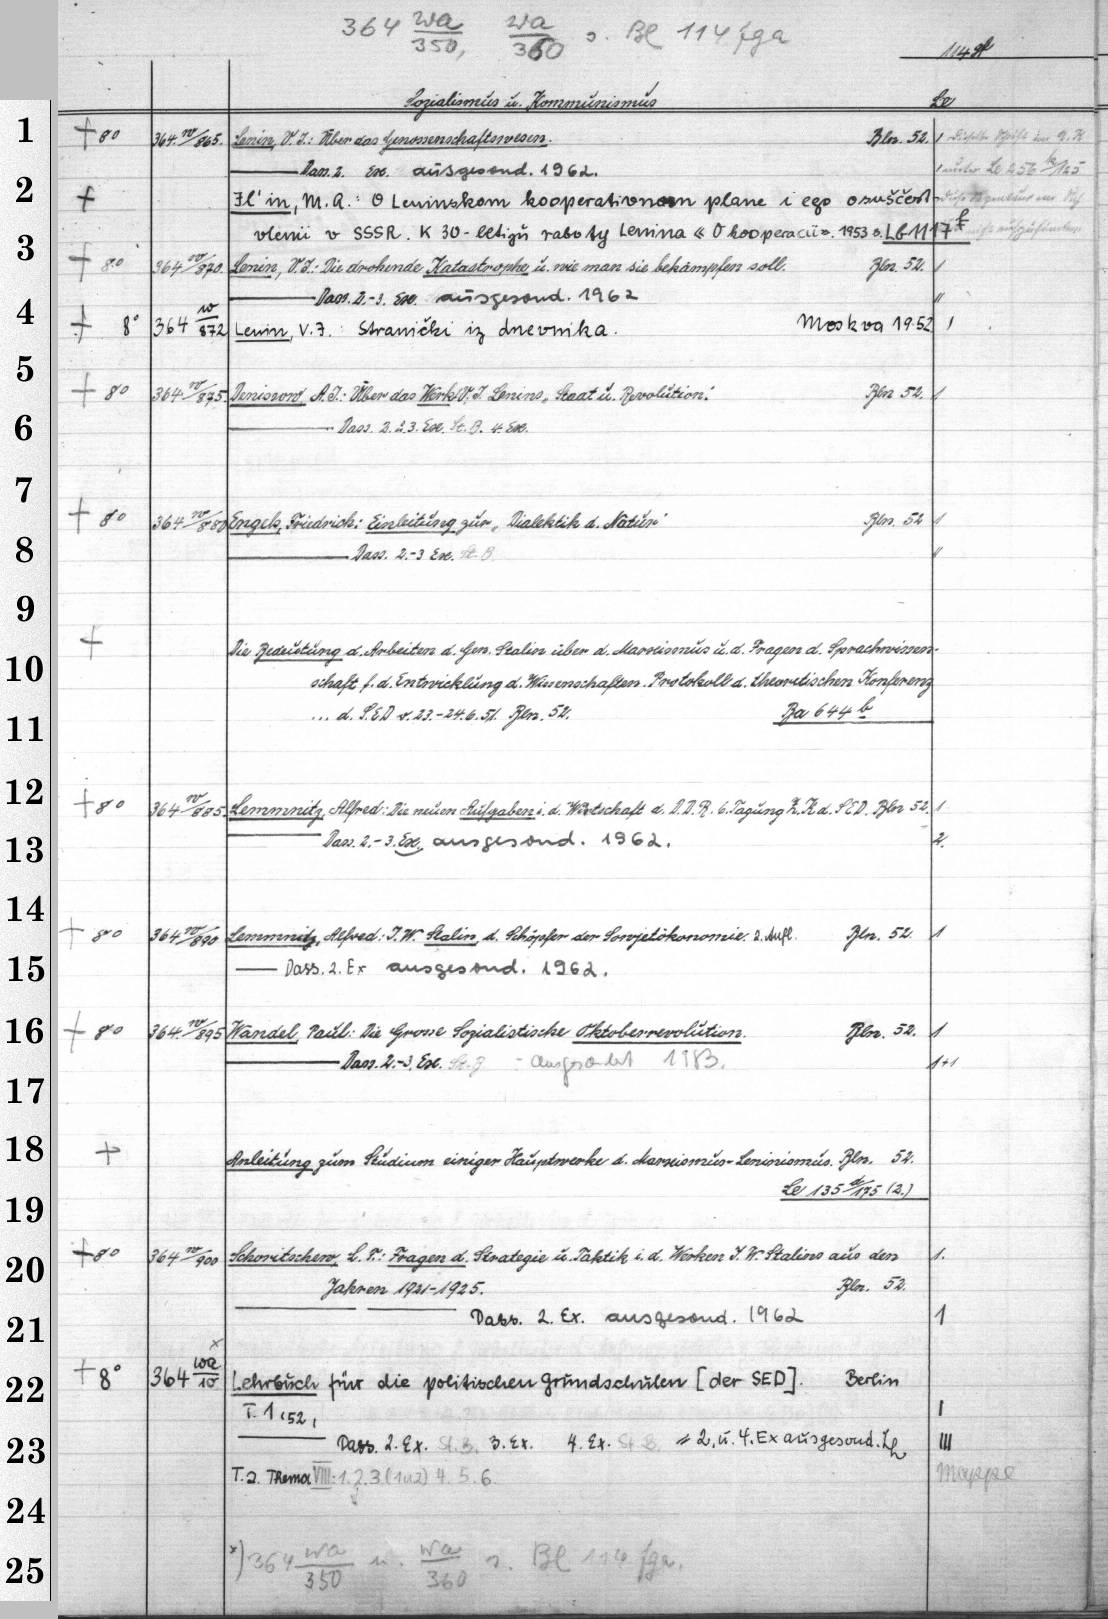 364 wa/350, wa/360 s. Bl 114 fga
114gf
Sozialismus u. Kommunismus Le
1 + 8° 364 w/865. Lenin, V. I.: Über das Genossenschaftswesen. Bln. 52. 1
Dass. 2. Ex. ausgesond. 1962. unter Le 256 /125
2 + Il'in, M. A.: O Leninskom kooperativnom plane i ego osuščest-
vlenii v SSSR. K 30-letiju raboty Lenina « O kooperacii ». 1953 s. Lb 1117 f
3 + 8° 364 w/870. Lenin, V. I.: Die drohende Katastrophe u. wie man sie bekämpfen soll. Bln. 52. 1
Dass. 2.-3. Ex. ausgesond. 1962 "
4 + 8° 364 w/872 Lenin, V. I.: Stranički iz dnevnika. Moskva 19.52 1
5 + 8° 364 w/875. Denissow, A. I.: Über das Werk V. I. Lenins „Staat u. Revolution." Bln 52. 1
6 Dass. 2. u. 3. Ex. St. B. 4. Ex.
7 + 8° 364 w/880 Engels, Friedrich: Einleitung zur „Dialektik d. Natur" Bln. 52 1
8 Dass. 2.-3 Ex. St. B. "
9
10 + Die Bedeutung d. Arbeiten d. Gen. Stalin über d. Marxismus u. d. Fragen d. Sprachwissen-
schaft f. d. Entwicklung d. Wissenschaften. Protokoll d. theoretischen Konferenz
11 ... d. SED v. 23.-24.6.51. Bln. 52. Ba 644 b
12 + 8° 364 w/885. Lemmnitz, Alfred: Die neuen Aufgaben i. d. Wirtschaft d. D.D.R. 6. Tagung Z. K d. SED. Bln 52. 1
13 Dass. 2.-3. Ex. ausgesond. 1962. 2.
14 + 8° 364 w/890 Lemmnitz, Alfred: J. W. Stalin, d. Schöpfer der Sowjetökonomie. 2. Aufl. Bln. 52. 1
15 Dass. 2. Ex ausgesond. 1962.
16 + 8° 364. w/895 Wandel, Paul: Die Grosse Sozialistische Oktoberrevolution. Bln. 52. 1
Dass. 2.-3. Ex. St. B - ausgesondert 1983. 1+1
17
18 + Anleitung zum Studium einiger Hauptwerke d. Marxismus-Leninismus. Bln. 52.
19 Le 135 d/175 (2.)
20 + 8° 364 w/900 Schowitschew, L. F.: Fragen d. Strategie u. Taktik i. d. Werken J. W. Stalins aus den 1.
Jahren 1921-1925. Bln. 52.
21 Dass. 2. Ex. ausgesond. 1962 1
x
22 + 8° 364 wa/10 Lehrbuch für die politischen Grundschulen [der SED]. Berlin
T. 1 '52, I
23 Dass. 2. Ex. St. B. 3. Ex. 4. Ex. St. B. 2. u. 4. Ex ausgesond. III
T. 2. Thema VIII: 1. 2. 3 (1 u 2) 4. 5. 6. Mappe
24
25 x) 364 wa/350 u. wa/360 s. Bl 114 fga.